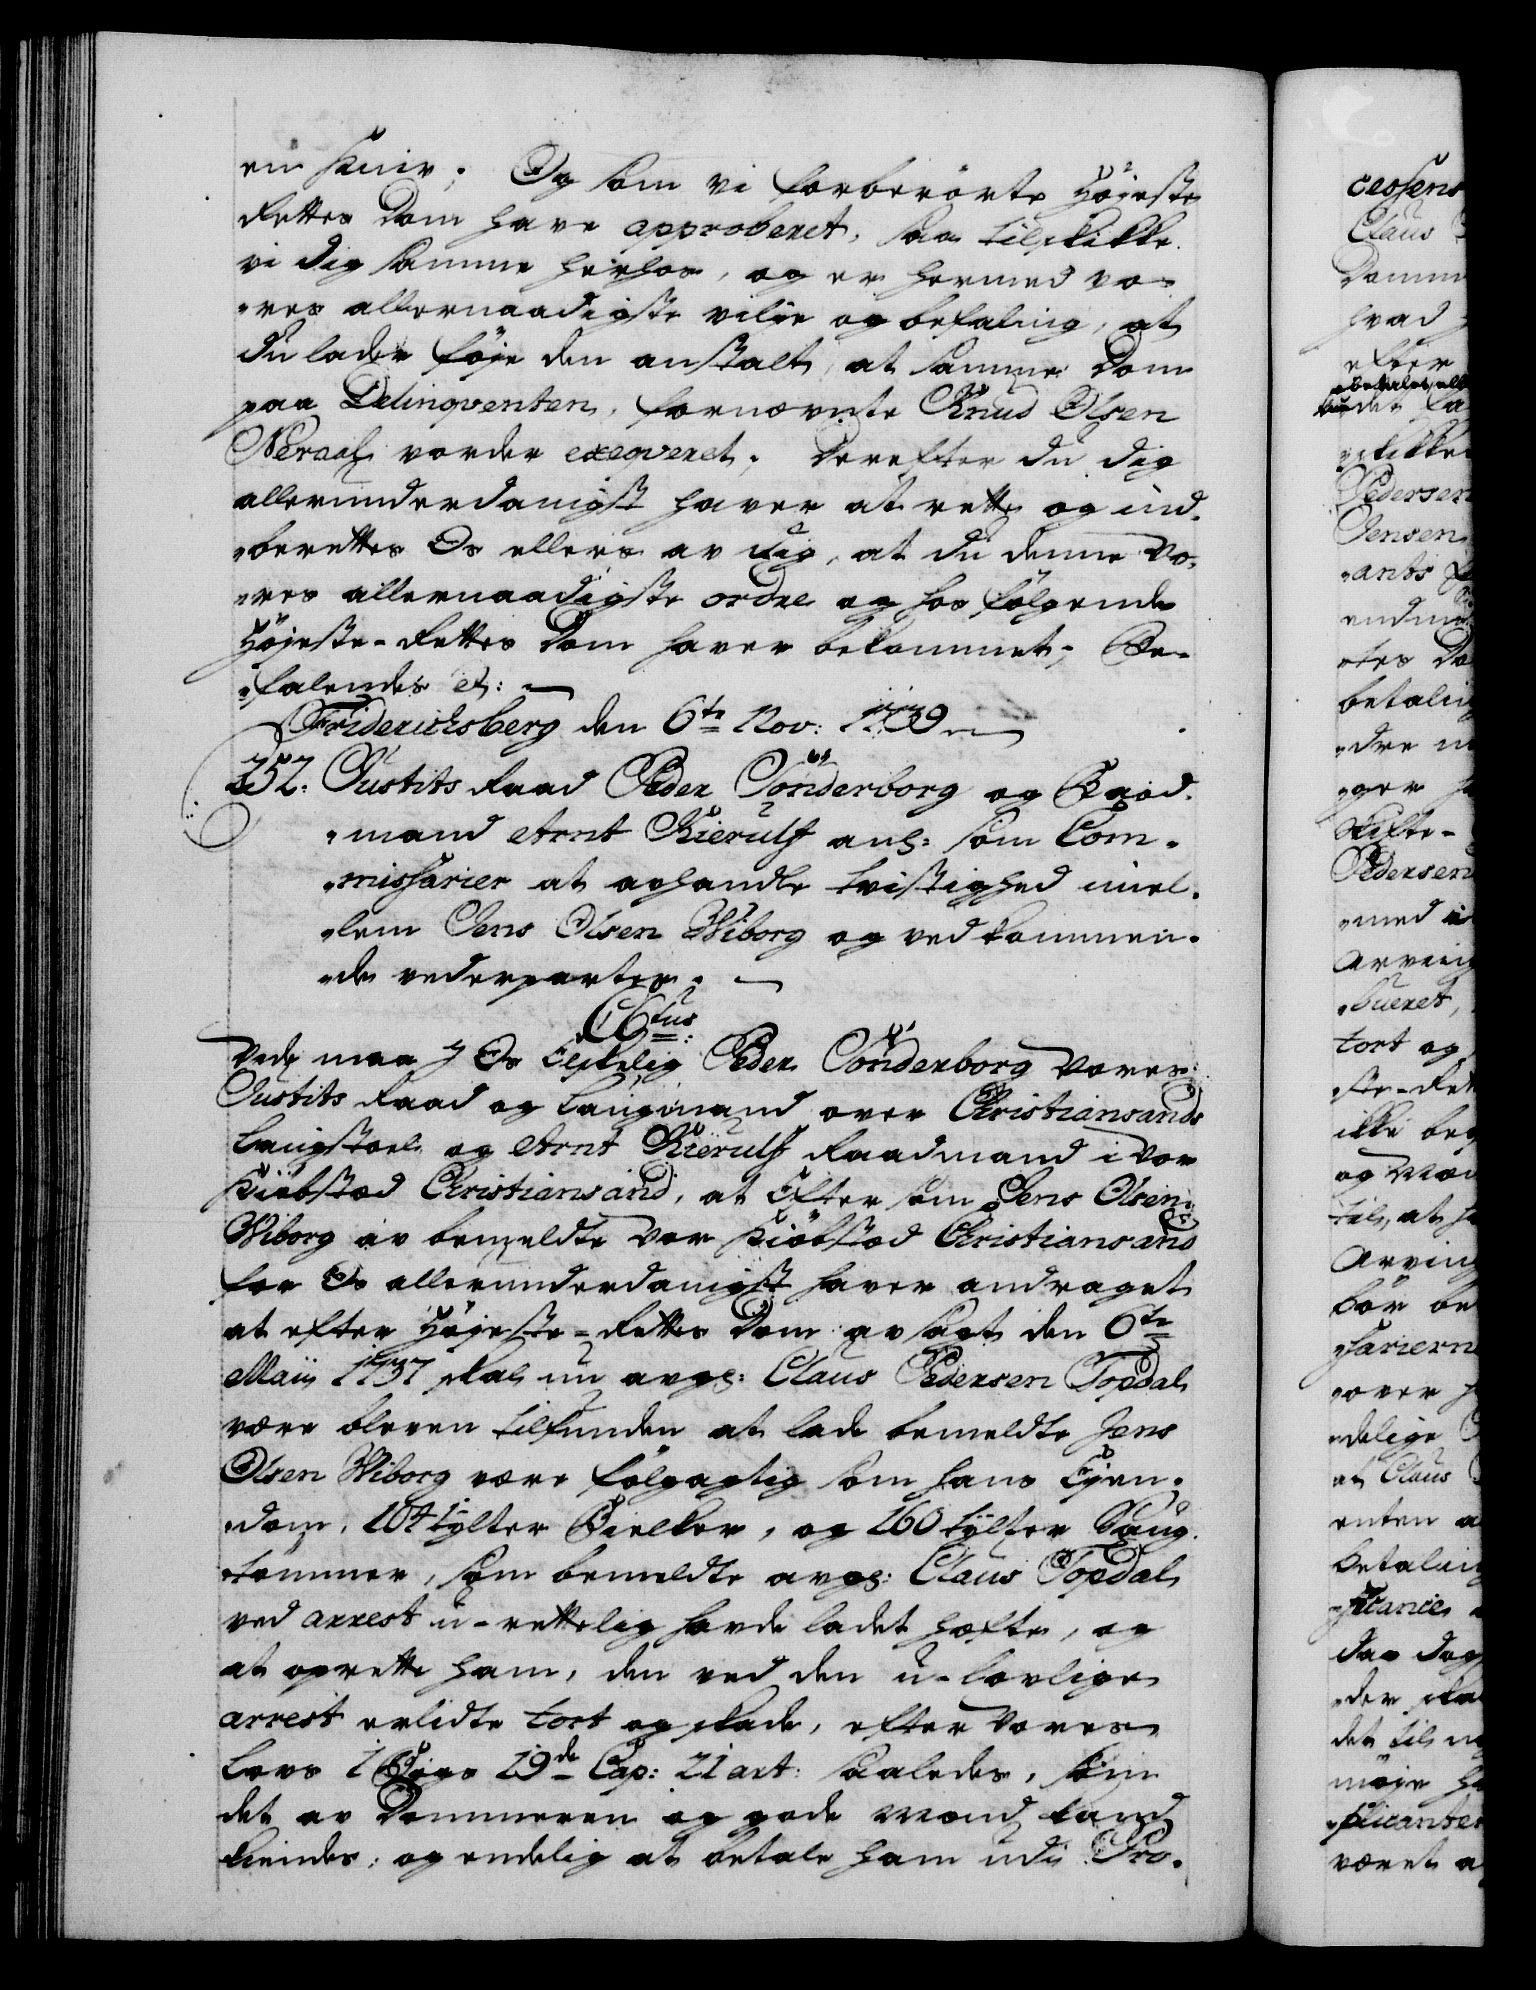 en Kniv; Og som vi forberörte Höjeste
Rettes Dom have approberet, saa tilskikke
vi dig samme herhos, og er hermed vo-
res allernaadigste villie og befaling, at
du lader föje den anstalt, at samme Dom
paa Delinqventen, fornævnte Knud Olsen
vorder exeqveret. Derefter du dig
allerunderdanigst haver at rette og ind-
berettes Os ellers av dig, at du denne Vo-
res allernaadigste ordre og hos fölgende
Höjeste-Rettes Dom haver bekommet; Be-
falendes etc:
Friderichsberg den 6te Nov: 1739
252. Justits Raad Peder Sönderborg og Raad-
mand Arnt Kierulf anl: som Com-
missarier at afhandle tvistighed imel-
lem Jens Olsen Wiborg og vedkommen-
de vederparter.
C6tus:
Vide maa I Os Elskelig Peder Sönderborg Vores
Justits Raad og Laugmand over Christiansands
Laugstoel og Arnt Kierulf Raadmand i Vor
Kiöbstad Christiansand, at Eftersom Jens Olsen
Wiborg av bemeldte Vor Kiöbstad Christiansand
for Os allerunderdanigst haver andraget
at efter Höjeste-Rettes Dom avsagt den 6te
Maii 1737 skal nu avg: Claus Pedersen Topdal
være bleven tilfunden at lade bemeldte Jens
Olsen Wiborg være fölgagtig som hans Ejen-
dom, 104 tylter Bielker, og 160 tylter Saug-
tömmer, som bemeldte avg: Claus Topdal
ved arrest u-rettelig havde ladet hæfte, og
at oprette ham, den ved den u-lovlige
arrest erlidte tort og skade, efter Vores
Lovs 1 Bogs 19de Cap: 21 art: saaledes, som
det av Dommeren og gode Mænd kand
kiendes; og endelig at betale ham udi Pro-
cessens
Claus
Domm
hvad
efter
betales
det
skikke
Pedersen
Jensen
ants
endnu
tes Do
betaling
dre
ger
Skifte-
Pedersen
med
Arving
bueret,
tort og
ste-Ret
ikke beg
og Mæn
til, at h
Arving
bör be
sarierne
over h
delige
at Claus
enten a
betaling
ficance
dag
der ska
det til
möje h
plicanten
været a